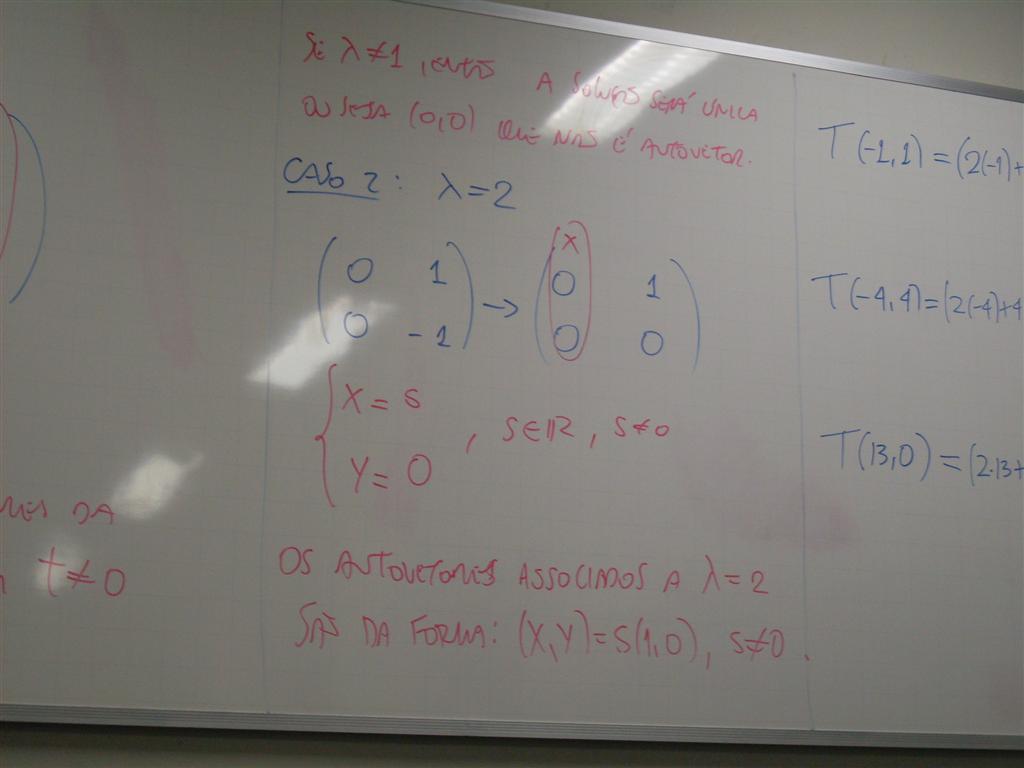 SE λ≠1, ENTÃO A SOLUÇÃO SERÁ ÚNICA
OU SEJA (0,0) QUE NÃO É AUTOVETOR.
CASO 2: λ=2
X
0 1 → 0 1
0 -1 0 0
X = S
, S∈ℝ, S≠0
Y = 0
OS AUTOVETORES ASSOCIADOS A λ=2
SÃO DA FORMA: (X,Y)=S(1,0), S≠0.
DA
t≠0
T(-1,1)=(2(-1)+
T(-4,4)=(2(-4)+4
T(13,0)=(2·13+